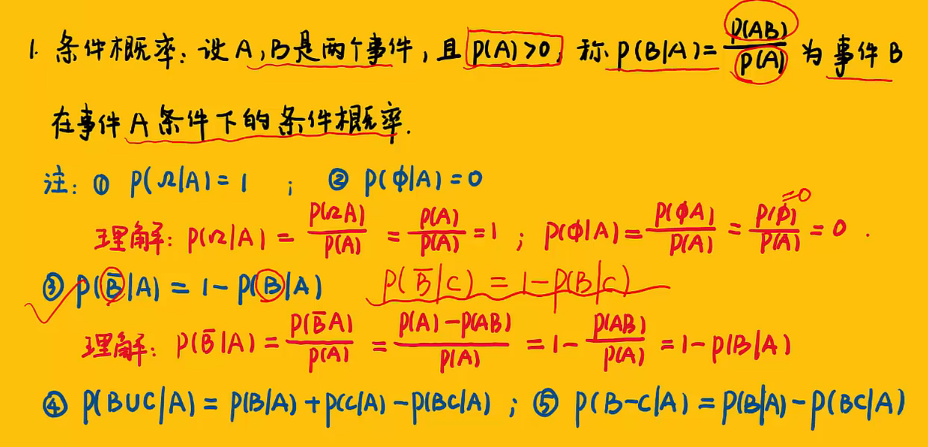 1. 条件概率：设A,B是两个事件，且P(A)>0，称P(B|A)=P(AB)/P(A)为事件B
在事件A条件下的条件概率.
注：① P(Ω|A)=1 ； ② P(φ|A)=0
理解：P(Ω|A)=P(ΩA)/P(A)=P(A)/P(A)=1 ； P(φ|A)=P(φA)/P(A)=P(φ)/P(A)=0 . =0
③ P(B̅|A)=1-P(B|A) P(B̅|C)=1-P(B|C)
理解：P(B̅|A)=P(B̅A)/P(A)=P(A)-P(AB)/P(A)=1-P(AB)/P(A)=1-P(B|A)
④ P(B∪C|A)=P(B|A)+P(C|A)-P(BC|A) ； ⑤ P(B-C|A)=P(B|A)-P(BC|A)